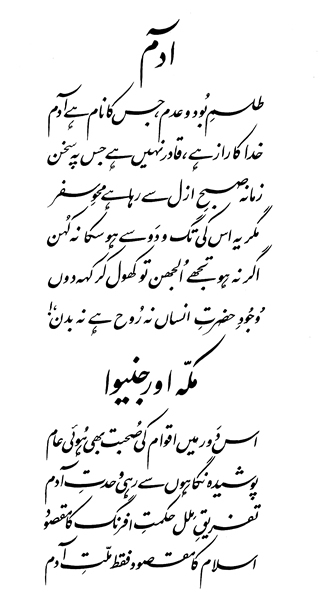 آدم
طلسمِ بُود و عدم، جس کا نام ہے آدم
خدا کا راز ہے، قادر نہیں ہے جس پہ سخن
زمانہ صبحِ ازل سے رہا ہے محوِ سفر
مگر یہ اس کی تگ و دَو سے ہو سکا نہ کُہن
اگر نہ ہو تجھے اُلجھن تو کھول کر کہہ دوں
وُجودِ حضرتِ انساں نہ رُوح ہے نہ بدن!
مکّہ اور جنیوا
اس دَور میں اقوام کی صُحبت بھی ہُوئی عام
پوشیدہ نگاہوں سے رہی وحدتِ آدم
تفریقِ مِلل حکمتِ افرنگ کا مقصود
اسلام کا مقصود فقط ملّتِ آدم